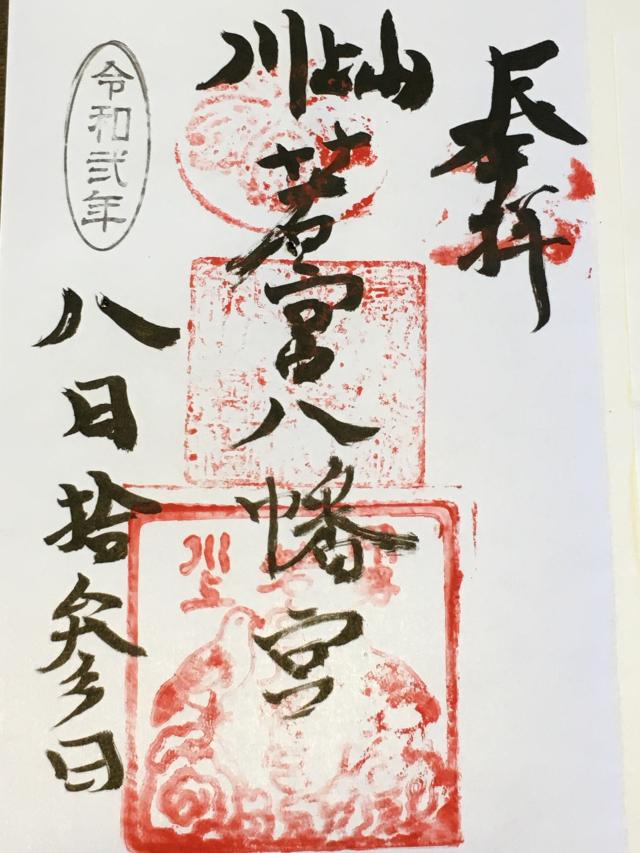 奉拝
川上山
若宮八幡宮
令和弐年
八月拾参日
川上